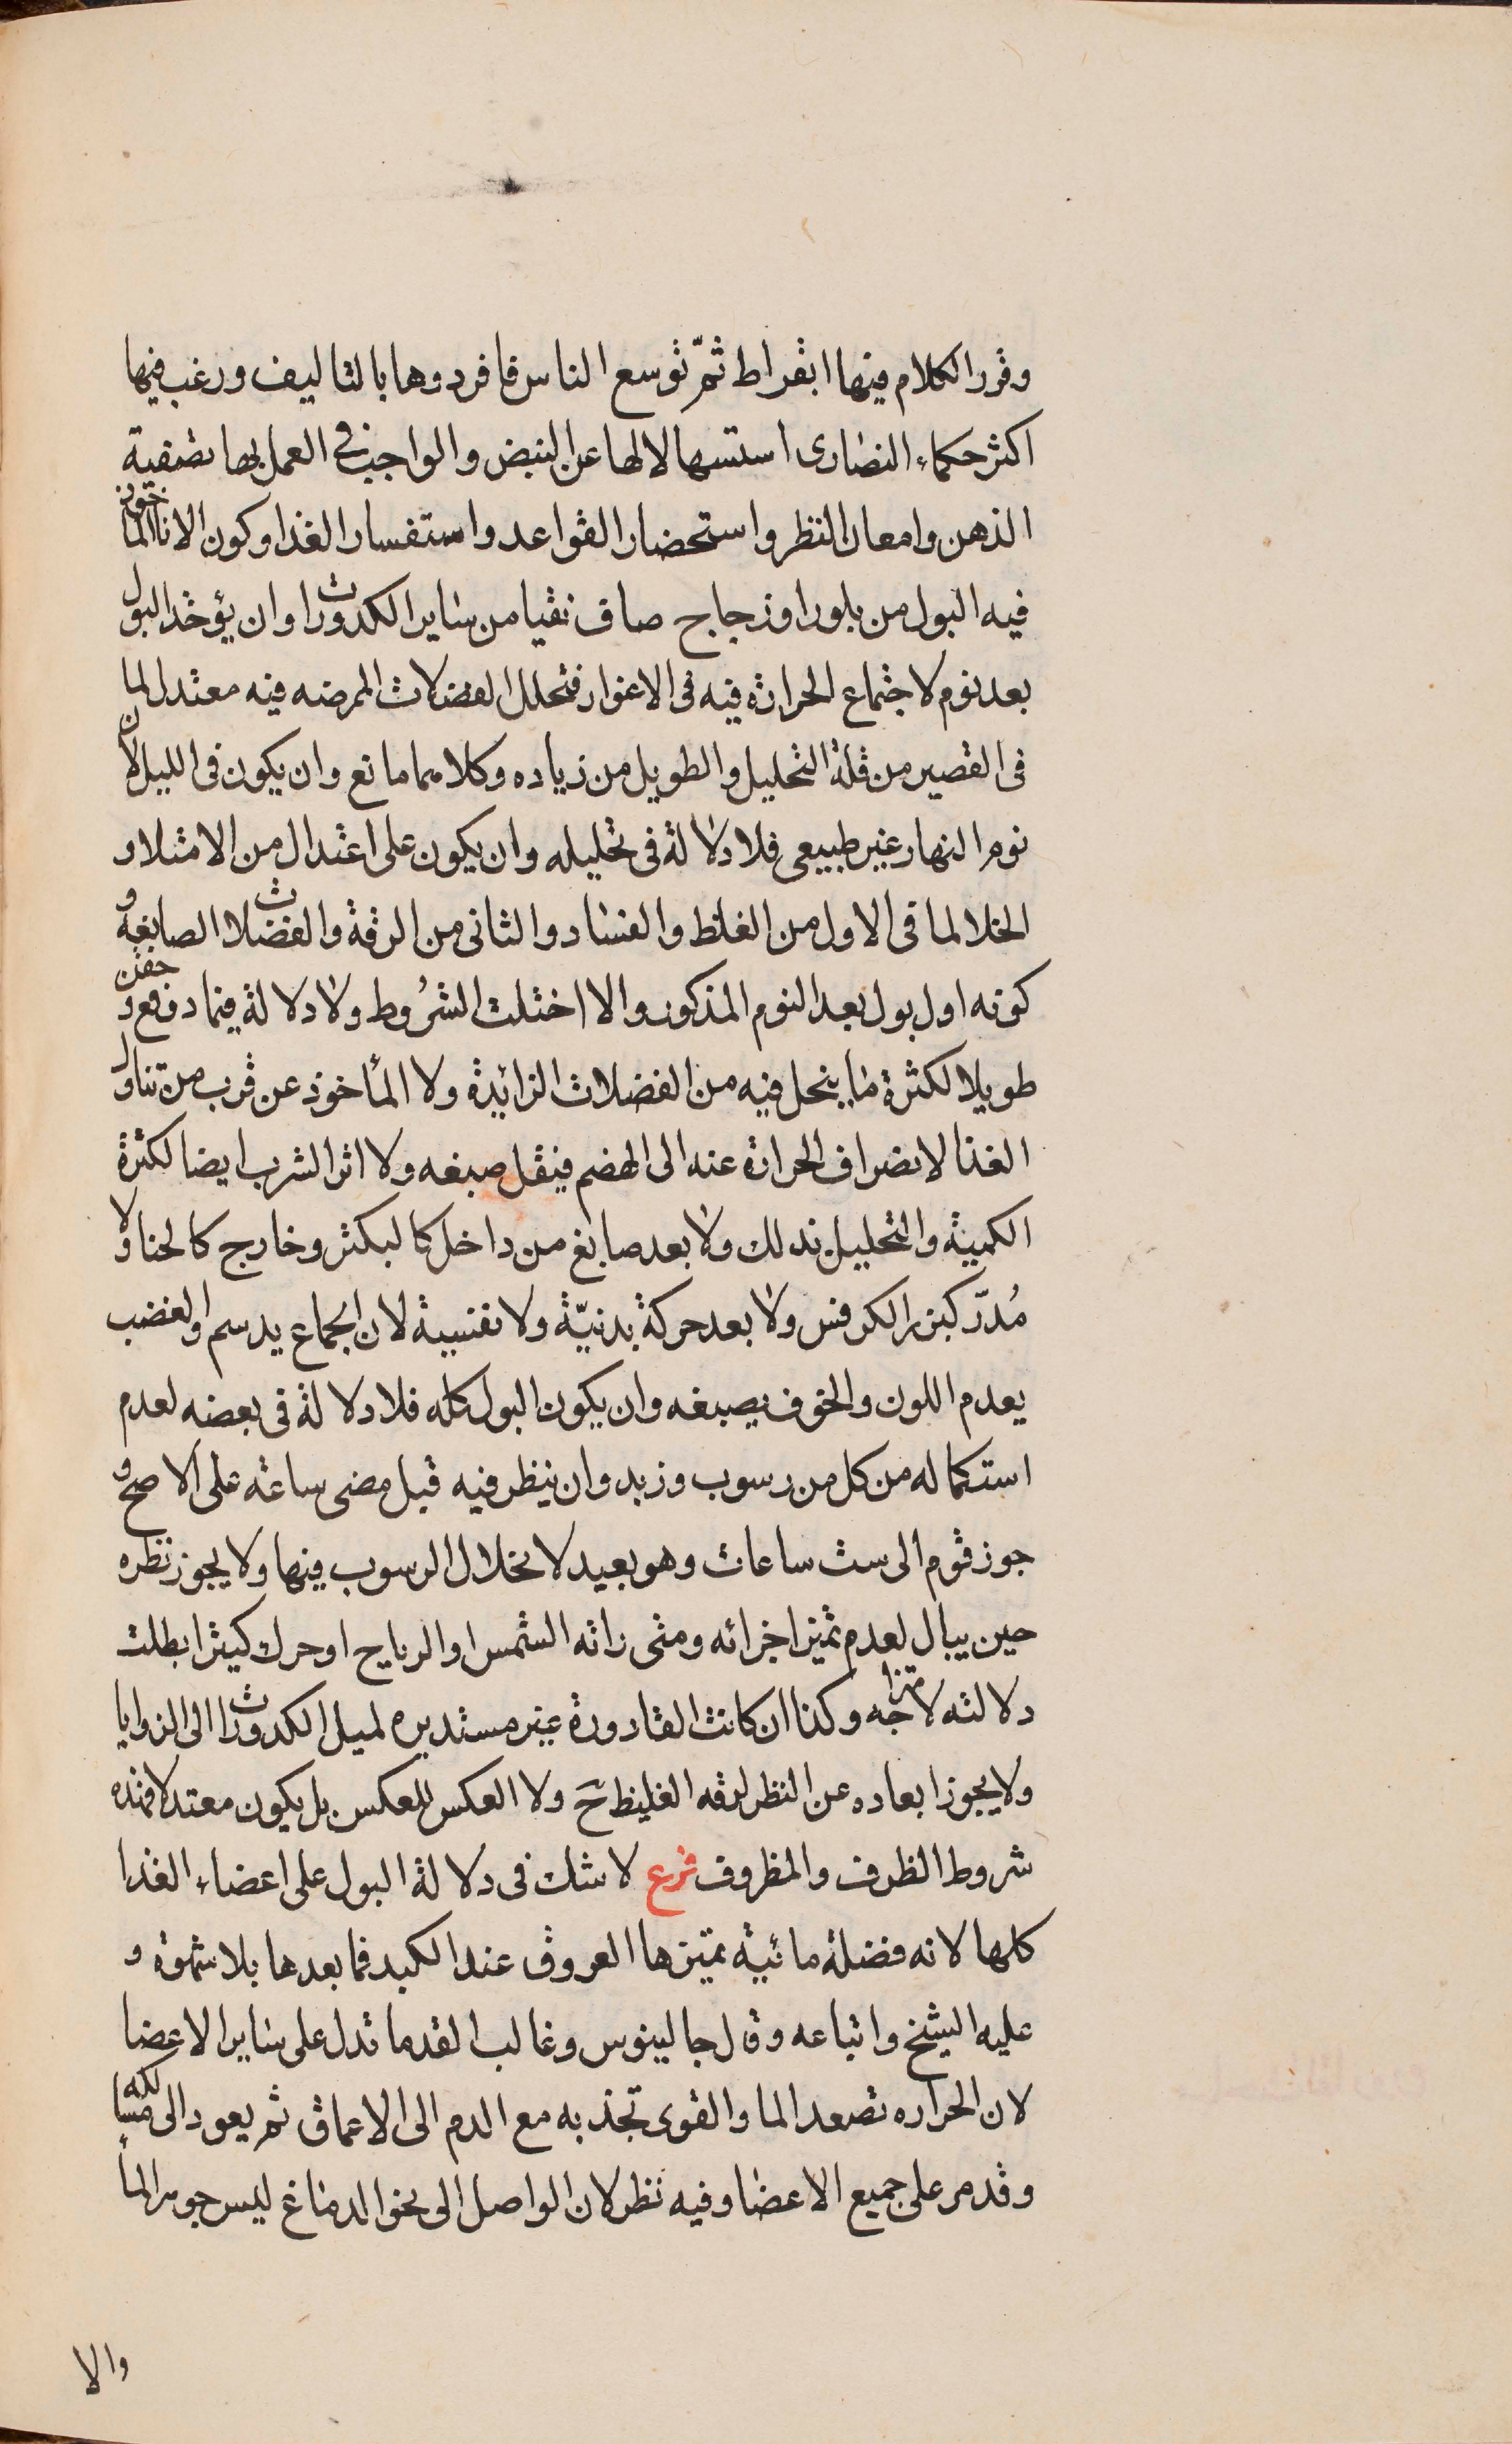 وقرر الكلام فيها ابقراط ثمّ توسع الناس فافردوها بالتاليف ورغب فيها
اكثر حكماء النصارى استسهالا لها عن النبض والواجب في العمل بها تصفية
الذهن وامعان النظر واستحضار القواعد واستفسار الغذا وكون الانا الماخوذ
فيه البول من بلور او زجاج صاف نقيا من ساير الكدورات وان يؤخذ البول
بعد نوم لاجتماع الحرارة فيه فى الاغوار فتحلل الفضلات الممرضه فيه معتدل لما
فى القصير من قلة التحليل والطويل من زياده وكلاهما مانع وان يكون فى الليل لان
نوم النهار غير طبيعى فلا دلالة فى تحليله وان يكون على اعتدال من الامتلا و
الخلا لما فى الاول من الغلظ والفساد والثانى من الرقة والفضلات الصابغة و
كونه اول بول بعد النوم المذكور والا اختلت الشرُوط ولا دلالة فيما دفع وحقن
طويلا لكثرة ما ينحل فيه من الفضلات الزائدة ولا المأخوذ عن قرب من تناول
الغذا لانصراف الحرارة عنه الى الهضم فيقل صبغه ولا اثر الشرب ايضا لكثرة
الكمية والتحليل بذلك ولا بعد صابغ من داخل كالبكثر وخارج كالحنا ولا
مُدرّ كبزر الكرفس ولا بعد حركة بدنيّة ولا نفسية لان الجماع يدسم والغضب
يعدم اللون والخوف يصبغه وان يكون البول كله فلا دلالة فى بعضه لعدم
استكماله من كل من رسوب وزبد وان ينظر فيه قبل مضى ساعته على الاصح و
جوز قوم الى ست ساعات وهو بعيد لانحلال الرسوب فيها ولا يجوز نظره
حين يبال لعدم تميز اجزائه ومتى زاته الشمس او الرياح او حرك كيثرا بطلت
دلالته لامتزاجه وكذا ان كانت القارورة غير مستديره لميل الكدورات الى الزوايا
ولا يجوز ابعاده عن النظر لرقه الغليظ ح ولا العكس للعكس بل يكون معتدلا فهذه
شروط الظرف والمظروف فرع لا شك فى دلالة البول على اعضاء الغدا
كلها لانه فضلة مائية تميزها العروق عند الكبد فما بعدها بلا شموة و
عليه الشيخ واتباعه وقال جالينوس وغالب القدما تدل على ساير الاعضا
لان الحراره تصعد الما والقوى تجذبه مع الدم الى الاعماق ثم يعود الى مسالكه
وقد مر على جميع الاعضا وفيه نظر لان الواصل الى نحو الدماغ ليس جوهر الما
والا